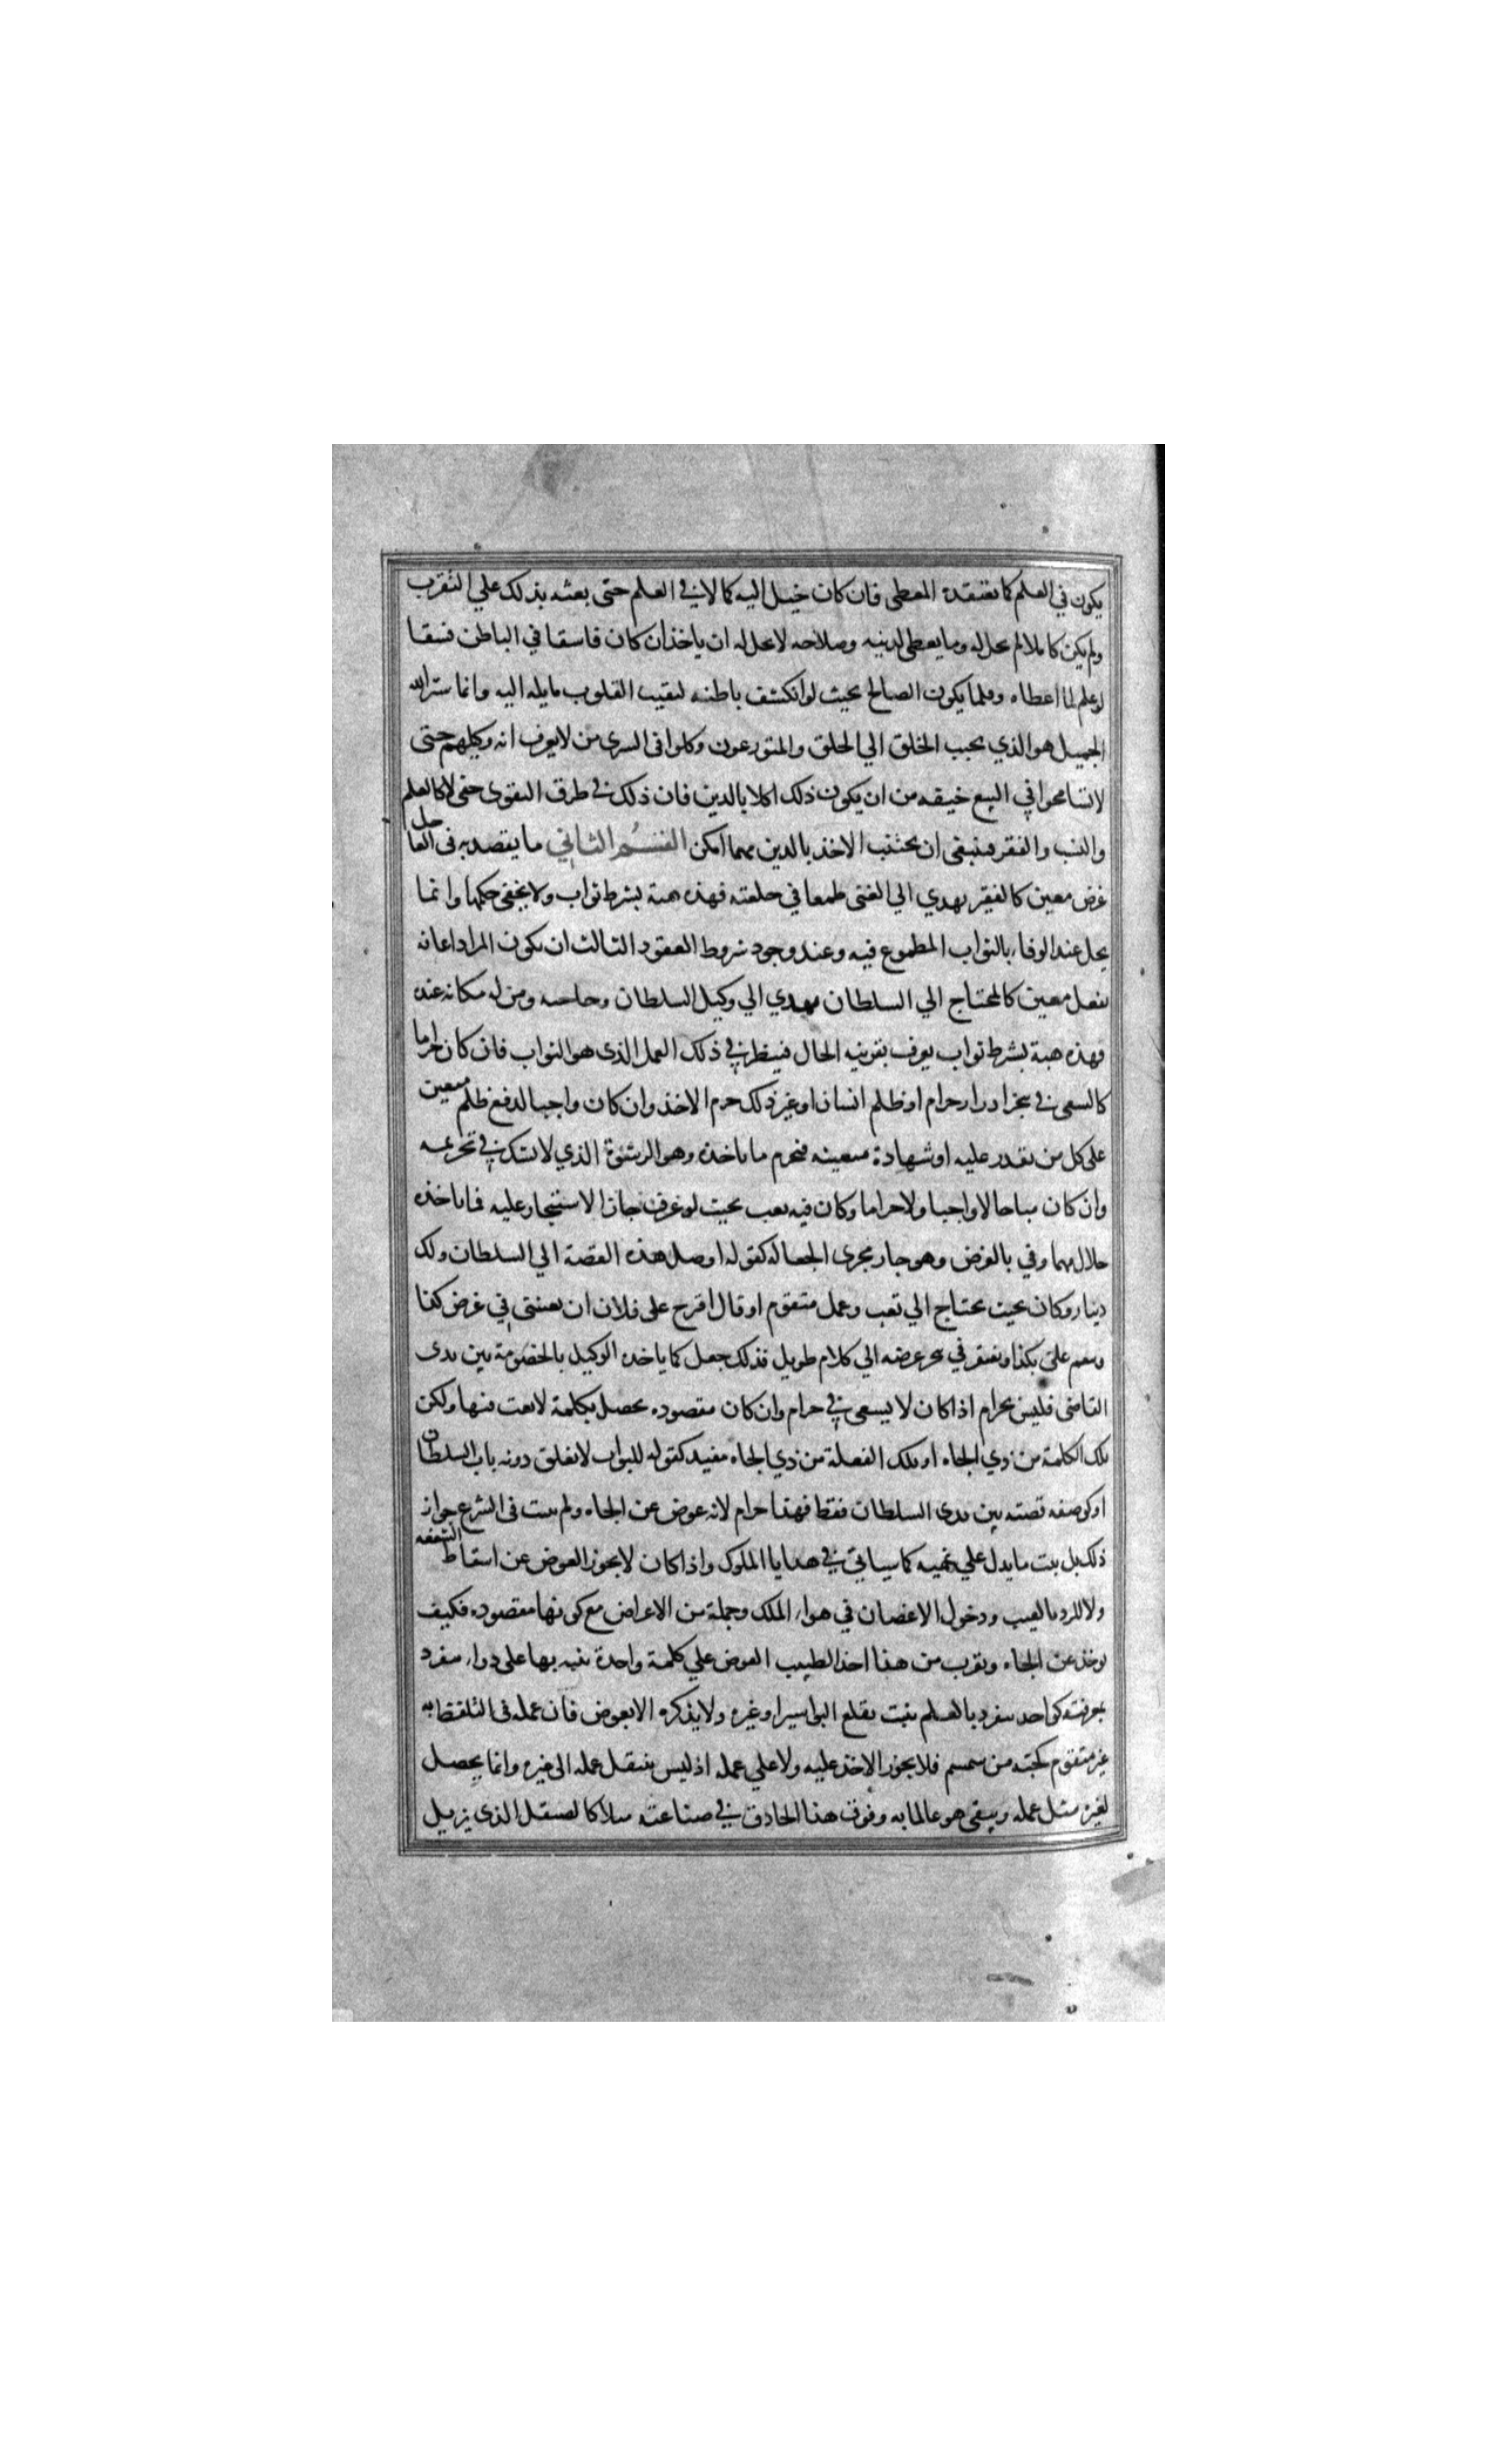 يكون في العلم كما يعتقده المعطى فان كان خيل اليه كمالا في العلم حتى بعثه بذلك علي التقرب
ولم يكن كاملا لم يحل له وما يعطى لدينه وصلاحه لا يحل له ان ياخذ ان كان فاسقا في الباطن فسقا
لو علم لما اعطاه وقلما يكون الصالح بحيث لو انكشف باطنه لبقيت القلوب مايله اليه وانما ستر الله
الجميل هو الذي يحبب الخلق الي الخلق والمتورعون وكلوا في السرى من لا يعرف انه وكيلهم حتى
لا تسامحوا في البيع خيفه من ان يكون ذلك اكلا بالدين فان ذلك في طرق التقوى حتى لا كالعلم
والنسب والفقر فينبغي ان يجتنب الاخذ بالدين مهما امكن القسم الثاني ما يقصد به في العاجل
غرض معين كالفقير يهدي الي الغني طمعا في خلعته فهذه هبة بشرط ثواب ولا يخفى حكمها وانما
يحل عند الوفاء بالثواب المطموع فيه وعند وجود شروط العقود الثالث ان يكون المراد اعانه
بفعل معين كالمحتاج الي السلطان يهدي الي وكيل السلطان وخاصه ومن له مكانه عنده
فهذه هبة بشرط ثواب يعرف بقرينه الحال فينظر في ذلك العمل الذى هو الثواب فان كان حراما
كالسعى في ادرار حرام او ظلم انسان او غير ذلك حرم الاخذ وان كان واجبا لدفع ظلم معين
على كل من يقدر عليه او شهادة معينه فيحرم ما ياخذه وهو الرشوة الذي لا تشك في تحريمه
وان كان مباحا لا واجبا ولا حراما وكان فيه تعب بحيث لو عرف لجاز الاستيجار عليه فما ياخذه
حلال مهما وفي بالغرض وهو جار مجرى الجعاله كقوله اوصل هذه القصة الي السلطان ولك
دينار وكان بحيث يحتاج الي تعب وعمل متقوم او قال اقترح على فلان ان يعينني في غرض كذا
وينعم علي بكذا ويفتقر في غرضه الي كلام طويل فذلك جعل كما ياخذه الوكيل بالخصومة بين يدى
القاضى فليس بحرام اذا كان لا يسعى في حرام وان كان مقصوده يحصل بكلمة لا تعب فيها ولكن
تلك الكلمة من ذي الجاه او تلك الفعلة من ذي الجاه مفيد كقوله للبواب لا تغلق دونه باب السلطان
او كوصفه قصته بين يدى السلطان فقط فهذا حرام لانه عوض عن الجاه ولم يثبت فى الشرع جواز
ذلك بل ثبت ما يدل علي نهيه كما سياتي في هدايا الملوك واذا كان لا يجوز العوض عن اسقاط الشفعه
ولا للرد بالعيب ودخول الاغصان في هواء الملك وجملة من الاعراض مع كونها مقصوده فكيف
يوخذ عن الجاه ويقرب من هذا اخذ الطبيب العوض علي كلمة واحدة ينبه بها على دواء منفرد
بمعرفته كواحد ينفرد بالعلم بنبت يقلع البواسير او غيره ولا يذكره الا بعوض فان عمله فى التلفظ به
غير متقوم كحبة من سمسم فلا يجوز الاخذ عليه ولا علي عمله اذ ليس ينتقل عمله الى غيره وانما يحصل
لغيره مثل عمله ويبقى هو عالما به وفوق هذا الحاذق في صناعته مثلا كالصيقل الذى يزيل